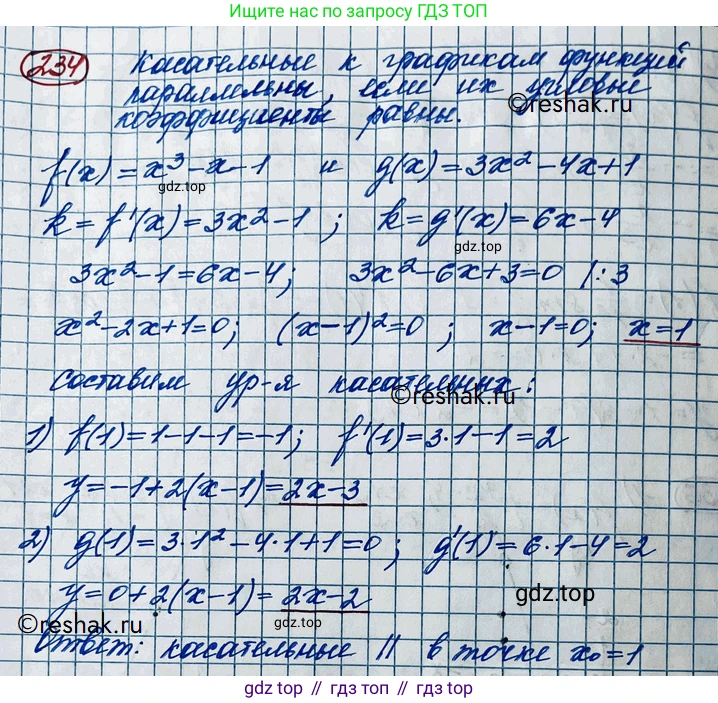 Нашли ответ по запросу ГДЗ ТОП
234 Касательные к графикам функций
параллельны, если их угловые
©reshak.ru
коэффициенты равны.
f(x)=x³-x-1 и g(x)=3x²-4x+1
gdz.top
k=f'(x)=3x²-1; k=g'(x)=6x-4
gdz.top
3x²-1=6x-4; 3x²-6x+3=0 /:3
x²-2x+1=0; (x-1)²=0; x-1=0; x=1
Составим ур-я касательных:
©reshak.ru
1) f(1)=1-1-1=-1; f'(1)=3·1-1=2
y=-1+2(x-1)=2x-3
2) g(1)=3·1²-4·1+1=0; g'(1)=6·1-4=2
y=0+2(x-1)=2x-2
gdz.top
©reshak.ru
gdz.top
Ответ: касательные || в точке x₀=1
gdz top // гдз топ // gdz.top